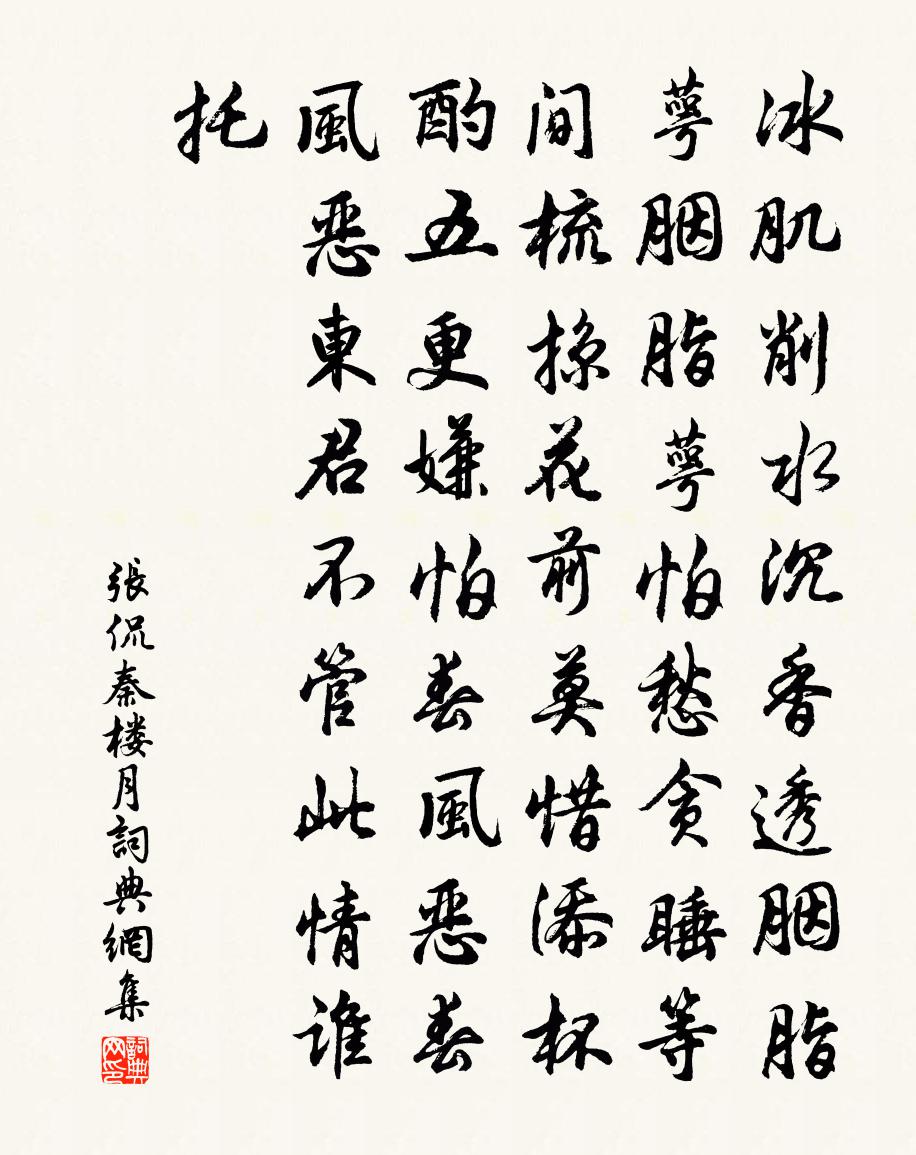 冰肌削水沉香透胭脂
萼胭脂萼怕愁貪睡等
间梳掠花前莫惜添杯
酌五更嫌怕春風惡春
風惡東君不管此情誰
托
張侃秦楼月詞典網集
詞典网印